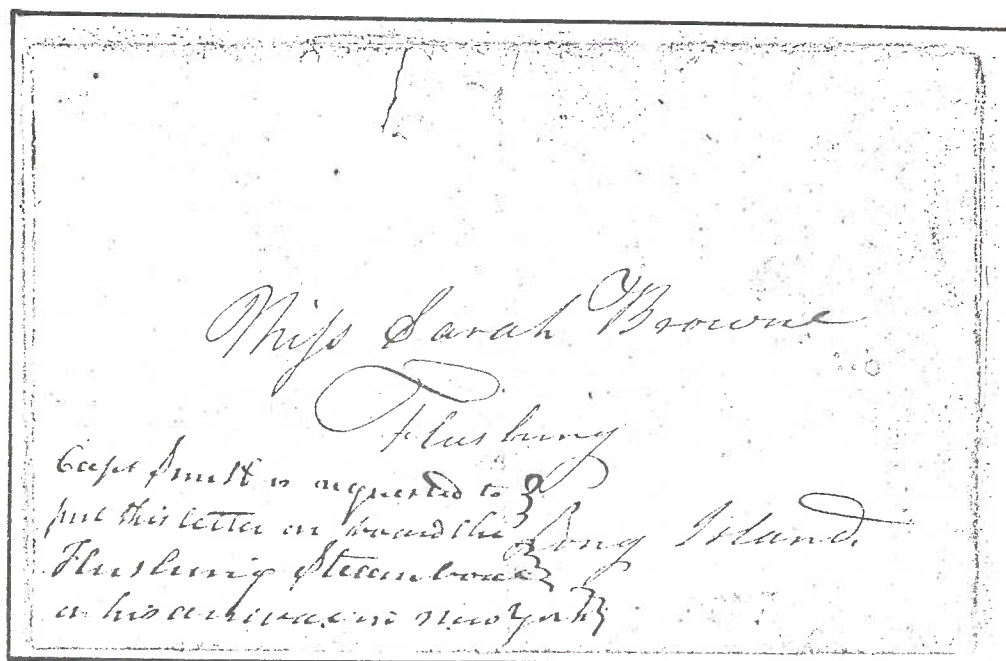 Miss Sarah Browne
Flushing
Long Island.
Capt Smith is requested to
put this letter on board the
Flushing Steam boat
on his arrival in New York